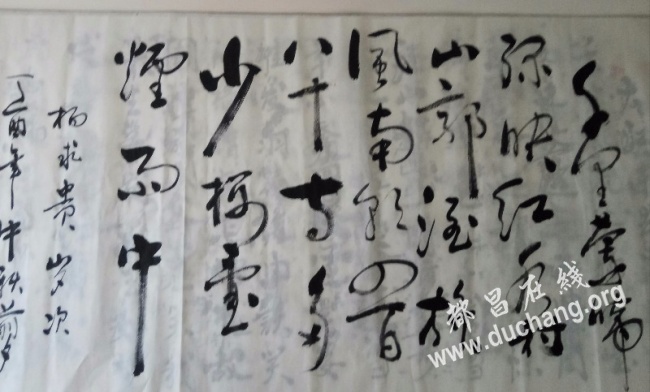 千里莺啼
绿映红水村
山郭酒旗
風南朝四百
八十寺多
少楼臺
煙雨中
杨求贵 岁次
丁酉年中秋前夕
都昌在线
www.duchang.org